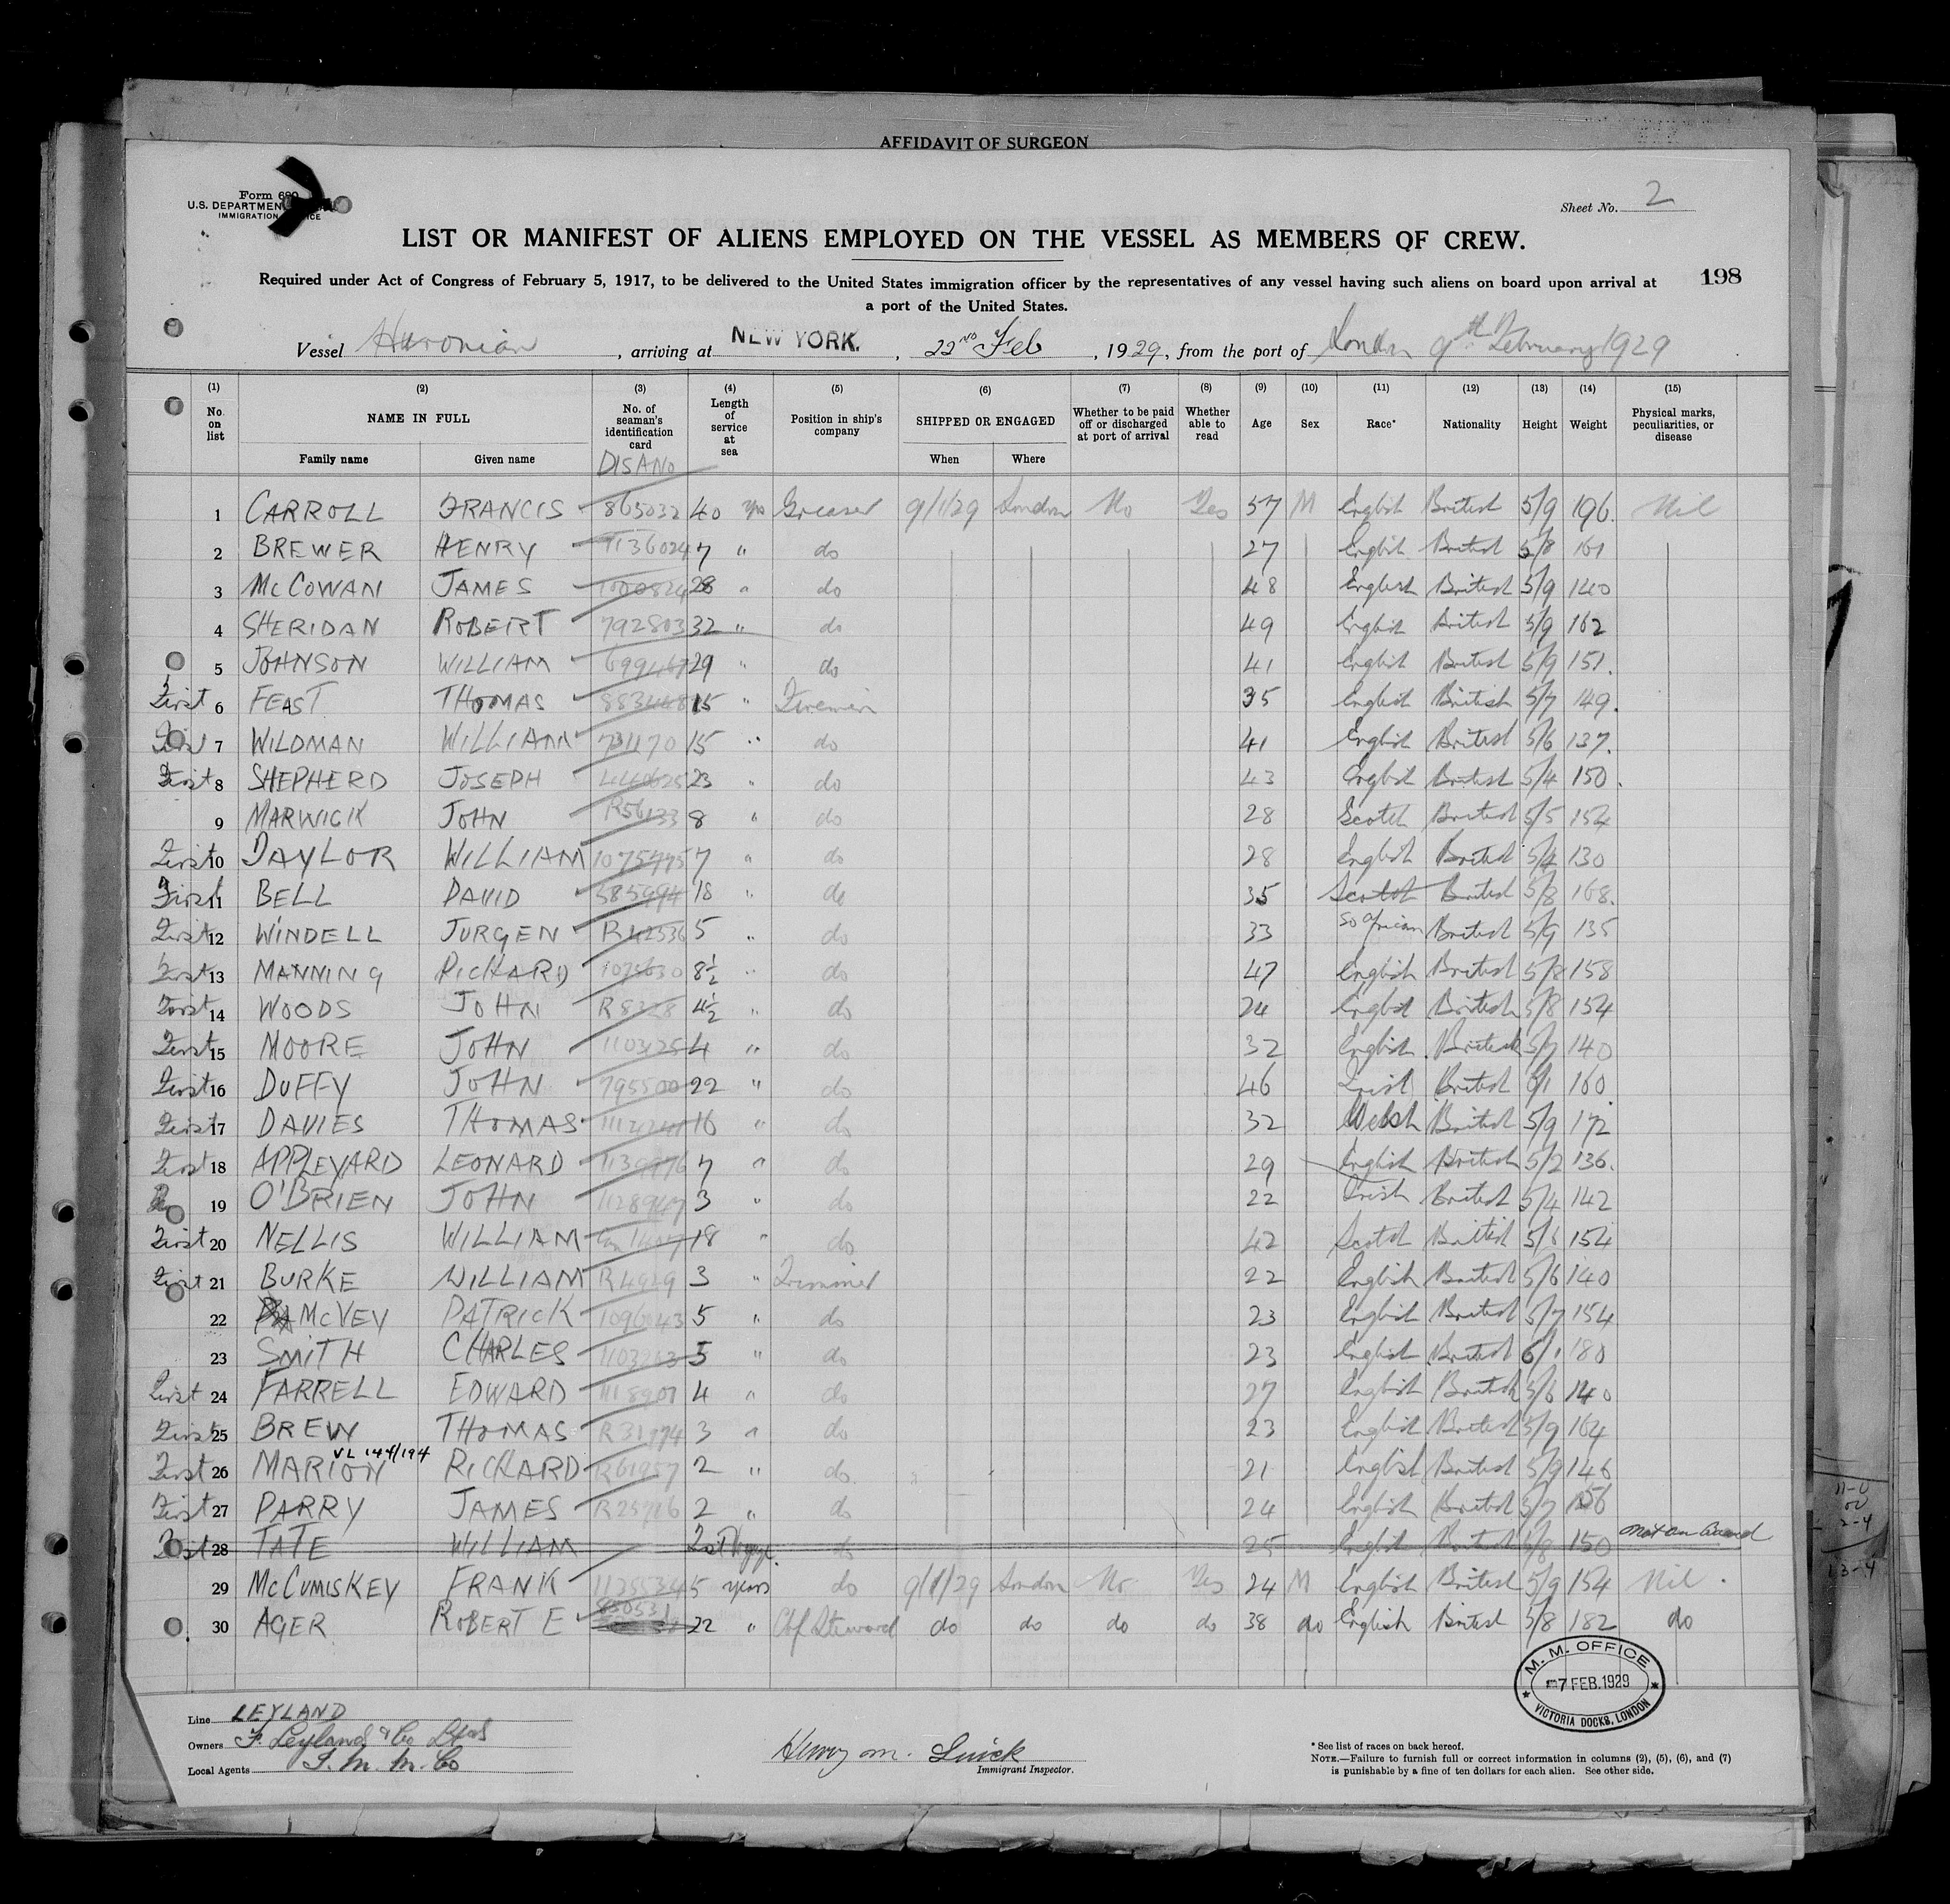 AFFIDAVIT OF SURGEON
Form 680
U.S. DEPARTMENT
IMMIGRATION
Sheet No. 2
LIST OR MANIFEST OF ALIENS EMPLOYED ON THE VESSEL AS MEMBERS OF CREW.
Required under Act of Congress of February 5, 1917, to be delivered to the United States immigration officer by the representatives of any vessel having such aliens on board upon arrival at
a port of the United States.
198
Vessel Huronian, arriving at NEW YORK., 22ND Feb, 1929, from the port of London 9th February 1929
(1) (2) (3) (4) (5) (6) (7) (8) (9) (10) (11) (12) (13) (14) (15)
No. on list NAME IN FULL Family name Given name No. of seaman's identification card DIS A No Length of service at sea Position in ship's company SHIPPED OR ENGAGED When Where Whether to be paid off or discharged at port of arrival Whether able to read Age Sex Race* Nationality Height Weight Physical marks, peculiarities, or disease
1 CARROLL FRANCIS 865032 40 yrs Greaser 9/1/29 London No Yes 57 M English British 5/9 196 Nil
2 BREWER HENRY 1136024 7 " do 27 English British 5/8 161
3 McCOWAN JAMES 1000824 28 " do 48 English British 5/9 140
4 SHERIDAN ROBERT 792803 32 " do 49 English British 5/9 162
5 JOHNSON WILLIAM 29 " do 41 English British 5/9 151
First 6 FEAST THOMAS 15 " Firemen 35 English British 5/7 149
First 7 WILDMAN WILLIAM 15 " do 41 English British 5/6 137
First 8 SHEPHERD JOSEPH 23 " do 43 English British 5/4 150
9 MARWICK JOHN R56133 8 " do 28 Scotch British 5/5 154
First 10 TAYLOR WILLIAM 7 " do 28 English British 5/4 130
First 11 BELL DAVID 18 " do 35 Scotch British 5/8 168
First 12 WINDELL JURGEN R42536 5 " do 33 So African British 5/9 135
First 13 MANNING RICHARD 8½ " do 47 English British 5/8 158
First 14 WOODS JOHN 4½ " do 24 English British 5/8 154
First 15 MOORE JOHN 4 " do 32 English British 5/7 140
First 16 DUFFY JOHN 795500 22 " do 46 Irish British 6/1 160
First 17 DAVIES THOMAS 16 " do 32 Welsh British 5/9 172
First 18 APPLEYARD LEONARD 7 " do 29 English British 5/2 136
19 O'BRIEN JOHN 3 " do 22 Irish British 5/4 142
First 20 NELLIS WILLIAM 18 " do 42 Scotch British 154
First 21 BURKE WILLIAM R4929 3 " Trimmer 22 English British 5/6 140
22 McVEY PATRICK 5 " do 23 English British 5/7 154
23 SMITH CHARLES 5 " do 23 English British 6/1 180
First 24 FARRELL EDWARD 4 " do 27 English British 5/6 140
First 25 BREW THOMAS 3 " do 23 English British 5/9 164
VL 144/194
First 26 MARION RICHARD R61957 2 " do 21 English British 5/9 146
First 27 PARRY JAMES 2 " do 24 English British 5/7 156
First 28 TATE WILLIAM do 25 English British 5/8 150 not on board
29 McCUMISKEY FRANK 1125534 5 years do 9/1/29 London No Yes 24 M English British 5/9 154 Nil
30 AGER ROBERT E 850531 22 " Chf Steward do do do do 38 do English British 5/8 182 do
M. M. OFFICE
7 FEB. 1929
VICTORIA DOCKS, LONDON
Line LEYLAND
Owners F. Leyland & Co Ltd
Local Agents I. M. M. Co
Henry M. 
Immigrant Inspector.
* See list of races on back hereof.
NOTE.—Failure to furnish full or correct information in columns (2), (5), (6), and (7)
is punishable by a fine of ten dollars for each alien. See other side.